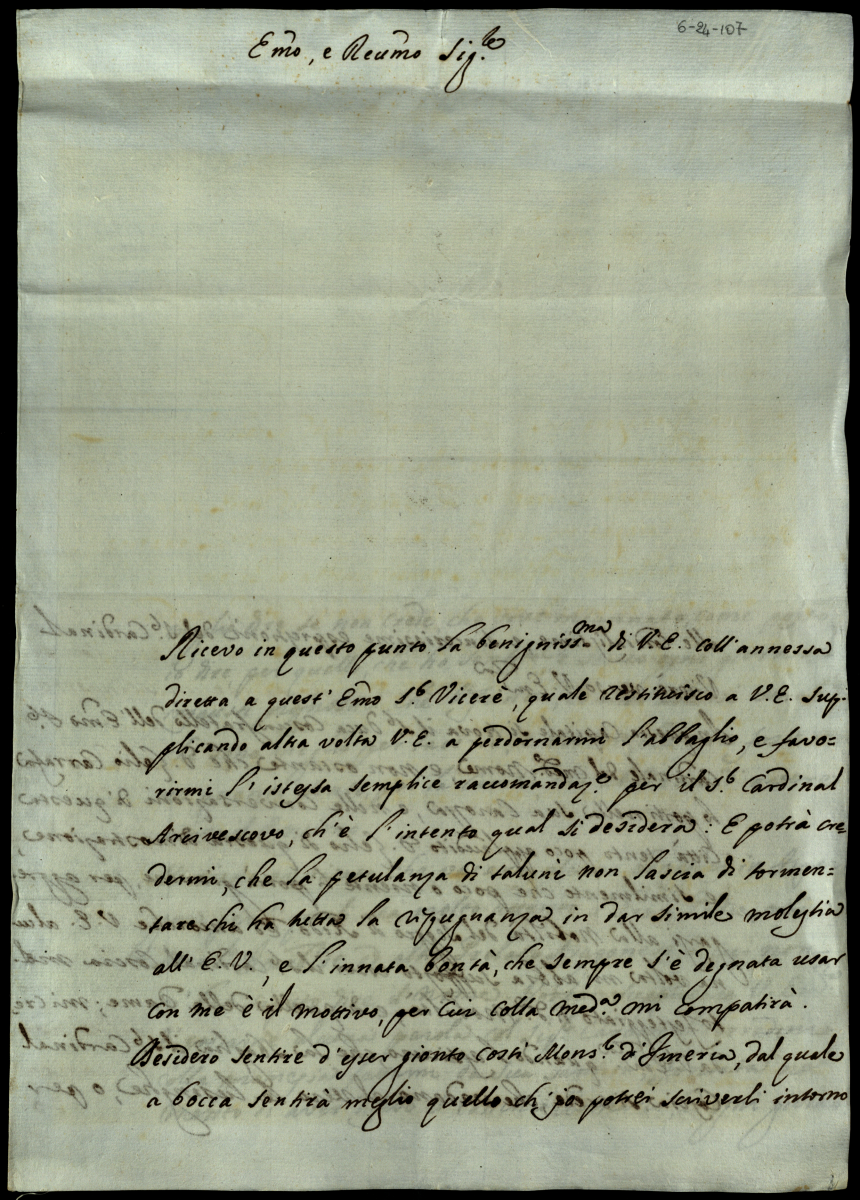 6-24-107
Emo, e Reumo Sig.re
Ricevo in questo punto la benigniss.ma di V.E. coll'annessa
diretta a quest' Emo S.r Vicerè, quale restituisco a V.E. sup=
plicando altra volta V.E. a perdonarmi l'abbaglio, e favo=
rirmi l'istessa semplice raccomandaz.e per il S.r Cardinal
Arcivescovo, ch'è l'intento qual si desidera: E potrà cre=
dermi, che la petulanza di taluni non lascia di tormen=
tare chi ha tutta la ripugnanza in dar simile molestia
all' E.V., e l'innata bontà, che sempre s'è degnata usar
con me è il mottivo, per cui colla med.a mi compatirà.
Desidero sentire d'esser gionto costì Mons.r d'Imeria, dal quale
a bocca sentirà meglio quello ch'io potrei scriverli intorno